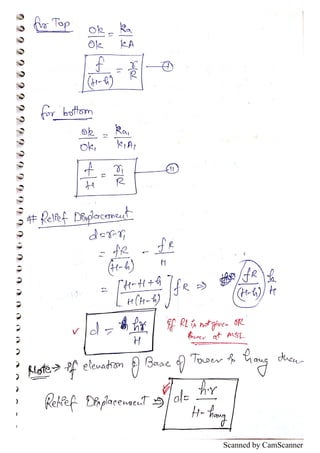 for Top
Ok/Ok = ka/kA
f/(H-h) = r/R — I
for bottom
Ok/Ok₁ = ka₁/k₁A₁
f/H = r₁/R — II
# Relief Displacement
d = r-r₁
= fR/(H-h) - fR/H
= [H-H+h / H(H-h)] fR ⇒ (fR/(H-h)) h/H
d = hr/H If RL is not given OR
Base at MSL
Note → If elevation of Base of Tower is havg then
Relief Displacement ⇒ d = h·r/H-havg
Scanned by CamScanner